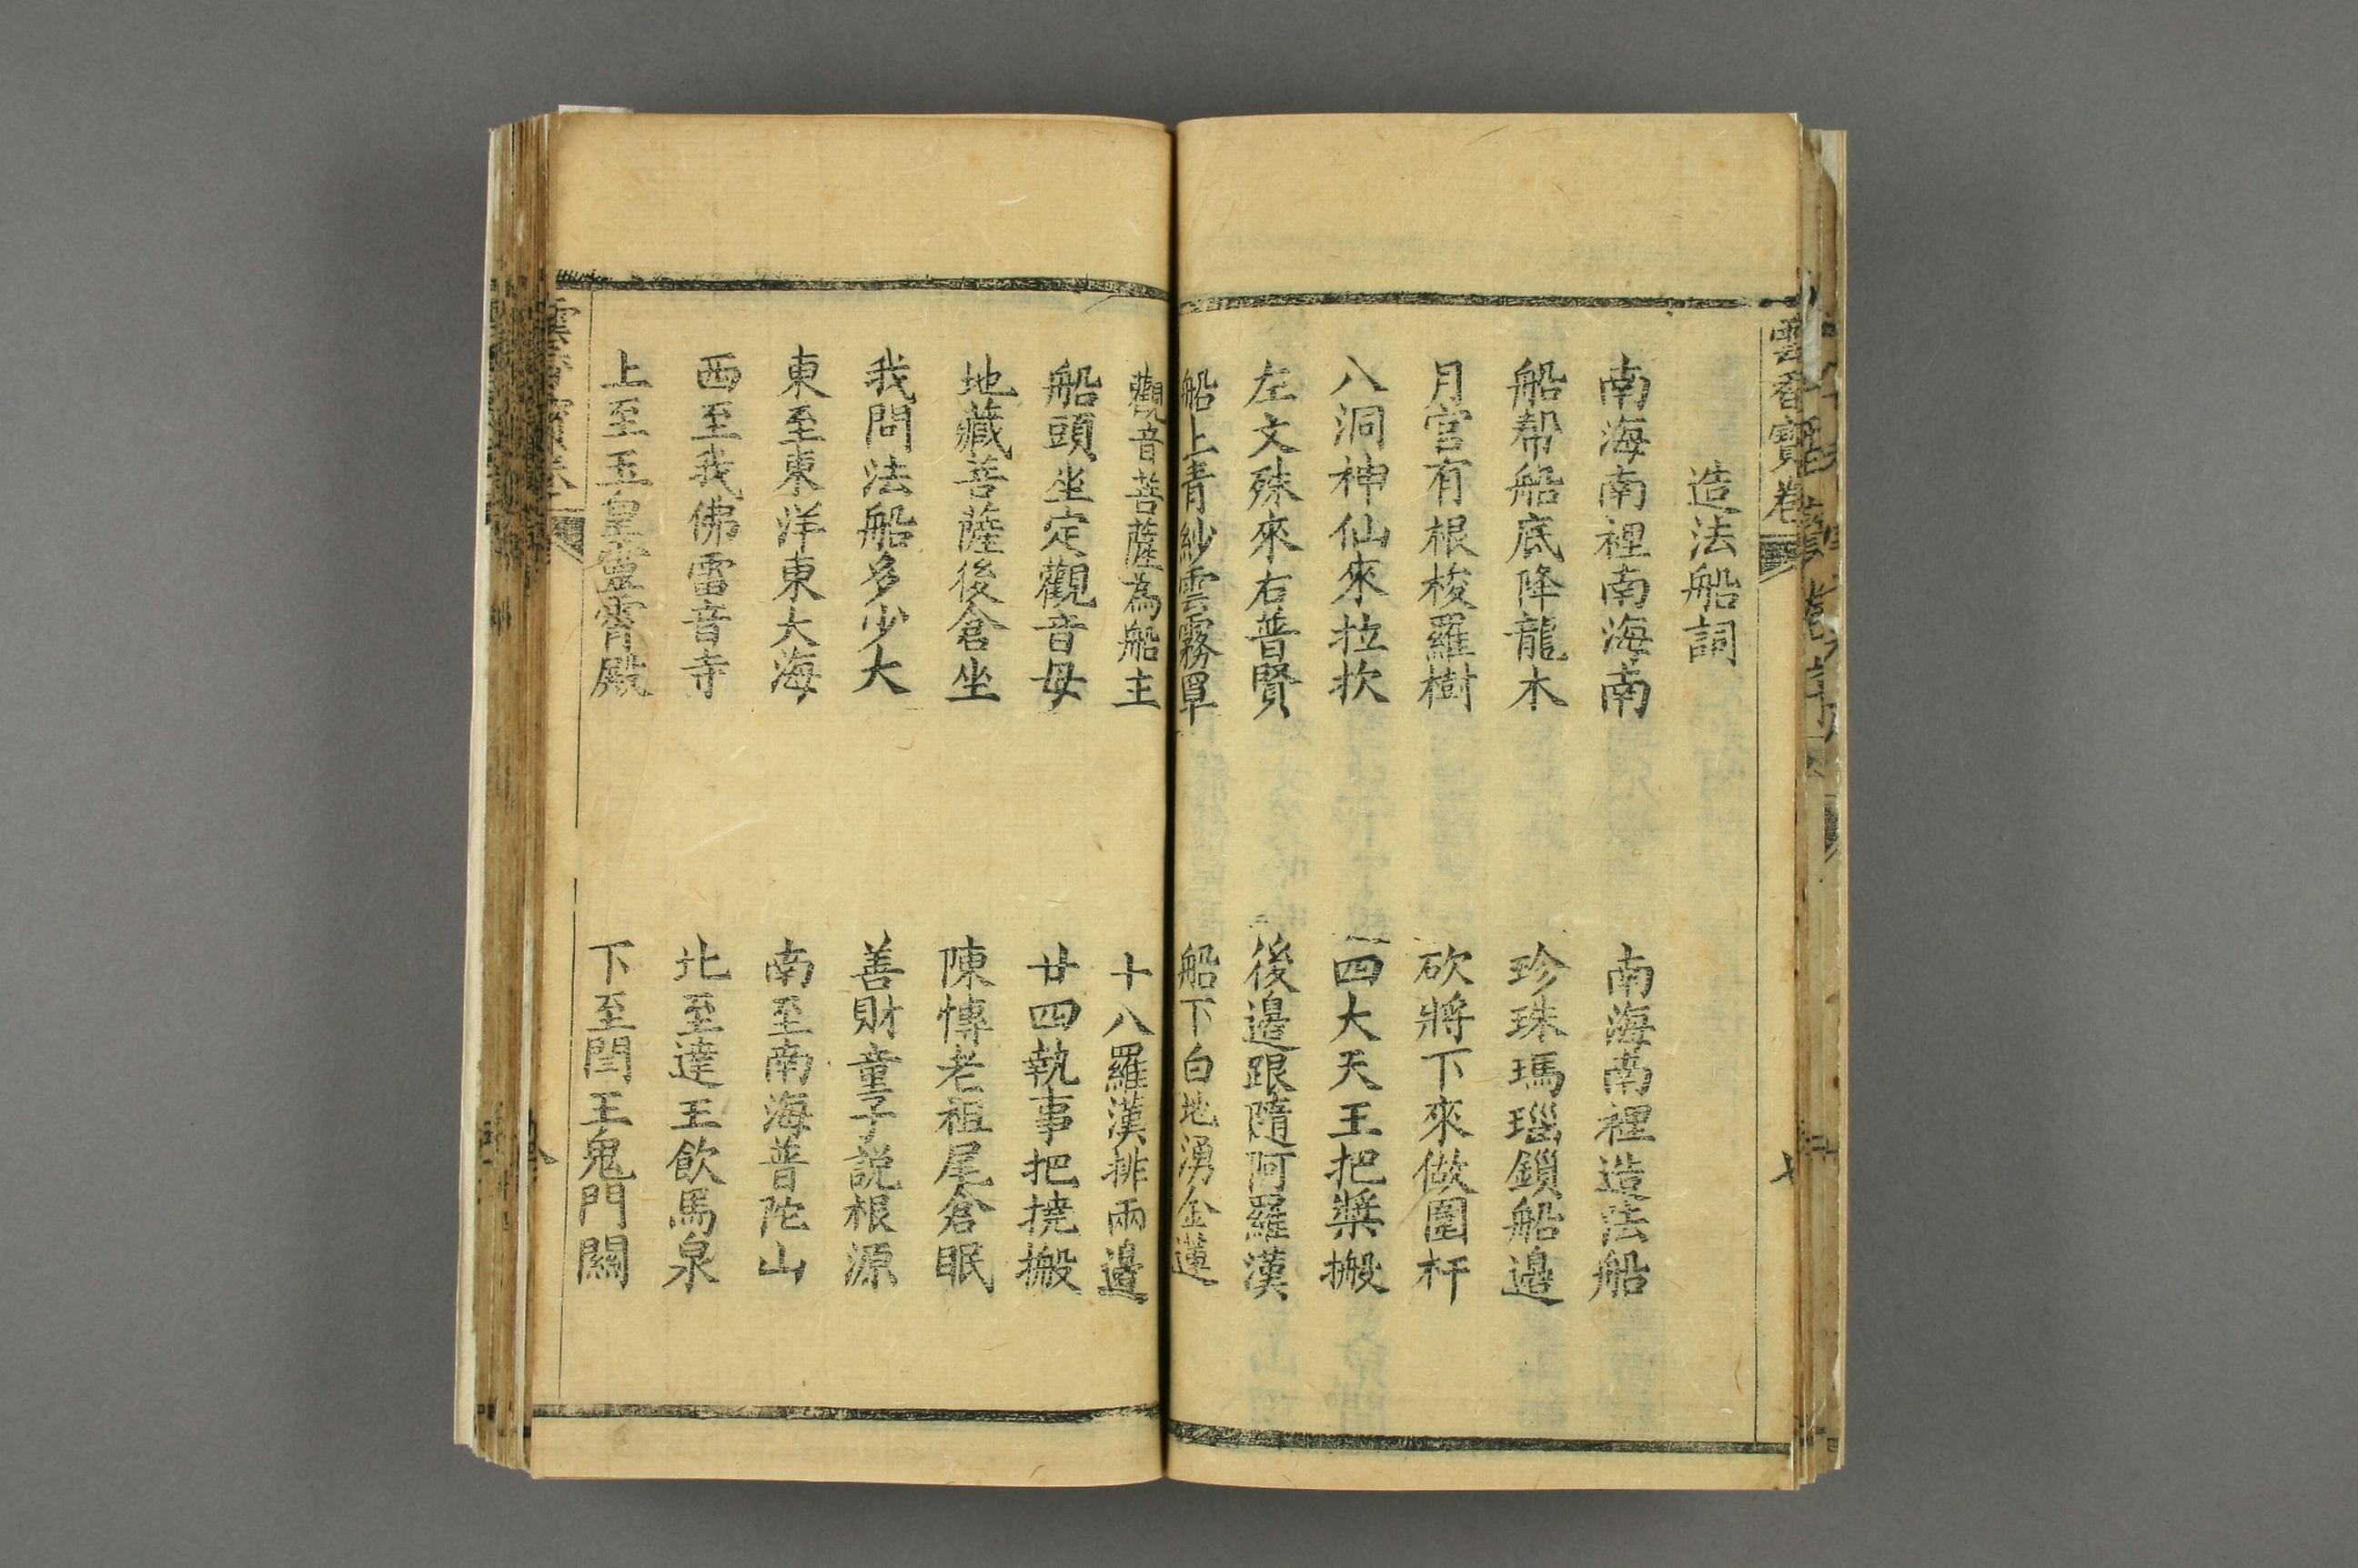 雲香寶卷
造法船詞
南海南裡南海南　南海南裡造法船
船帮船底降龍木　珍珠瑪瑙鎖船邊
月宮有根梭羅樹　砍將下來做圍杆
八洞神仙來拉坎　四大天王把槳搬
左文殊來右普賢　後邊跟隨阿羅漢
船上青紗雲霧罩　船下白地湧金蓮
觀音菩薩為船主　十八羅漢排兩邉
船頭坐定觀音母　廿四執事把撓搬
地藏菩薩後倉坐　陳慱老祖尾倉眠
我問法船多少大　善財童子說根源
東至東洋東大海　南至南海普陀山
西至我佛雷音寺　北至達王飲馬泉
上至玉皇靈霄殿　下至閆王鬼門關